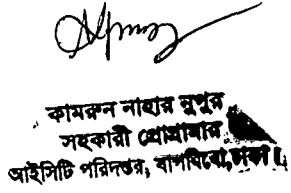 কামরুন নাহার নুপুর
সহকারী প্রোগ্রামার
আইসিটি পরিদপ্তর, বাপবিবো, ঢাকা।